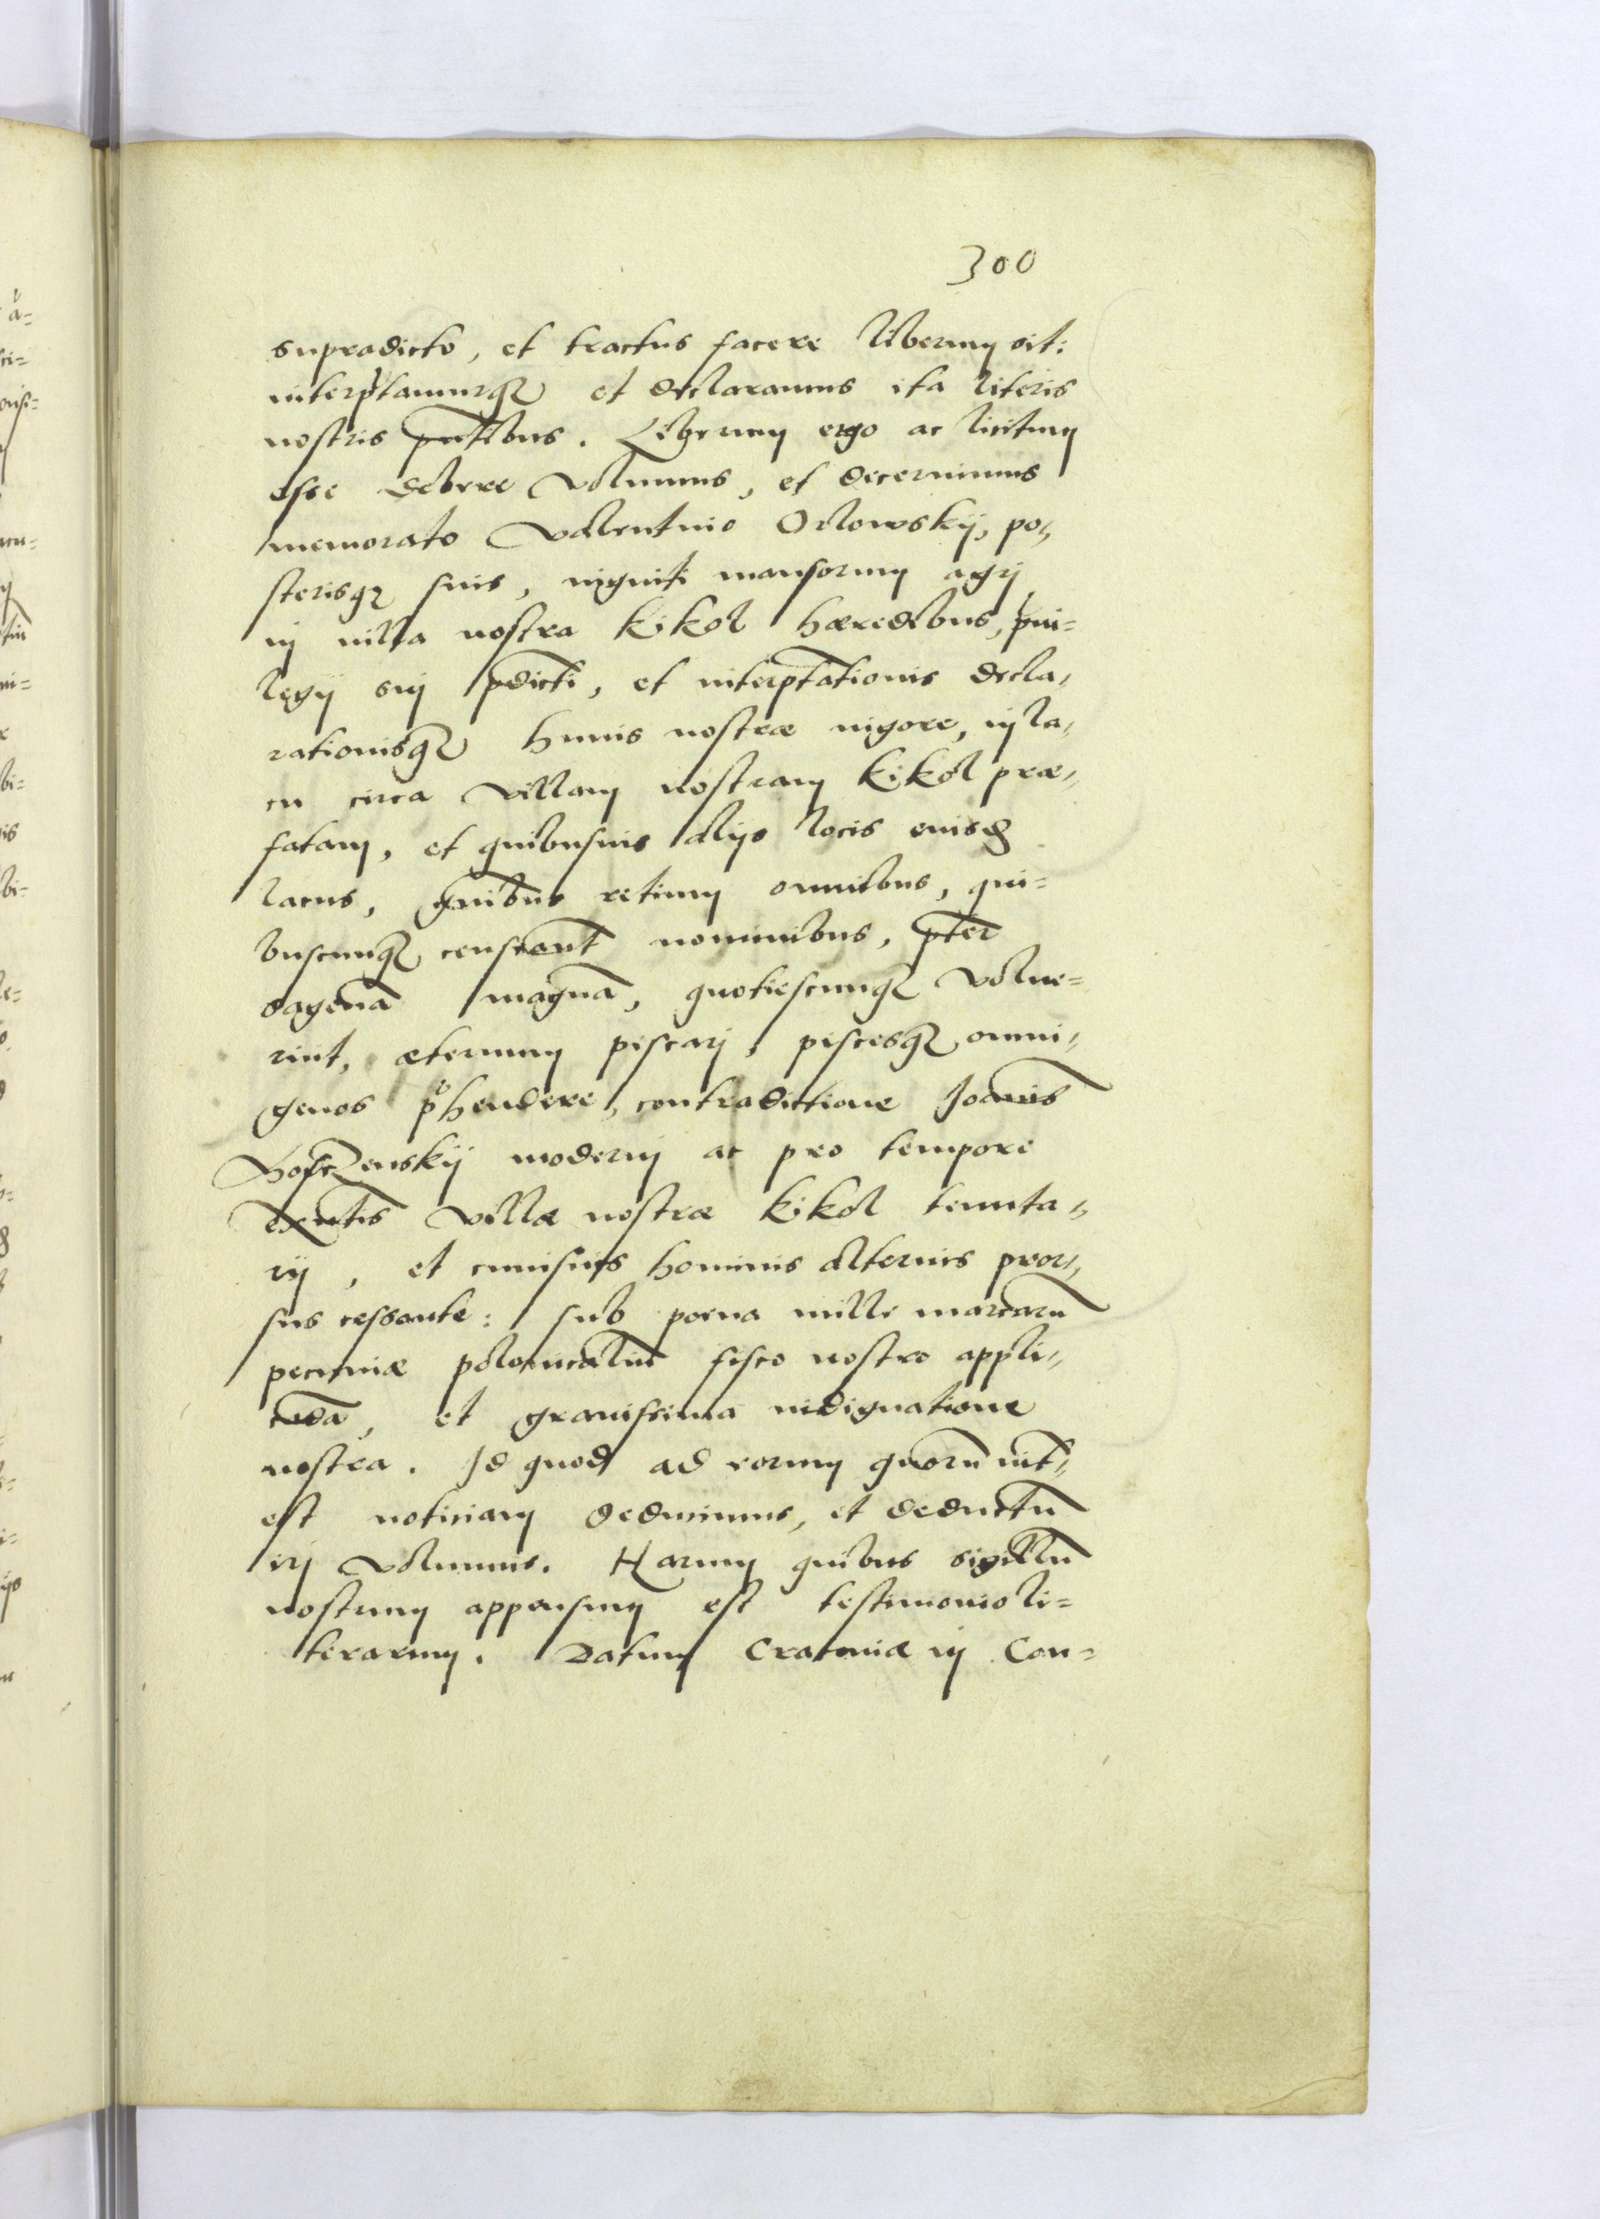 300
supradicto, et tractus facere liberum sit:
interp̃tamurqꝫ et declaramus ita literis
nostris pñtibus. Liberum ergo ac licitum
esse debere volumus, et decernimus
memorato Valentino Orlowskÿ, po-
sterisqꝫ suis, viginti mansorum agri
in villa nostra Kikol hæredibus, pui-
legij sui pdicti, et interptationis decla-
rationisqꝫ huius nostræ vigore, in la-
cu circa villam nostram Kikol præ-
fatam, et quibusuis alijs locis eiusd
lacus, gñibus retium omnibus, qui-
buscunqꝫ censeant nominibus, pter
sagenã magnã, quotiescunqꝫ volue-
rint, æternum piscari, piscesqꝫ omni-
genos p̃hendere, contradictione Joañis
moderni ac pro tempore
exñtis villæ nostræ Kikol tenuta-
rij, et cuiusuis hominis alterius pror-
sus cessante: sub poena mille marcarũ
pecuniæ polonicaliũ fisco nostro appli-
cãdã, et grauissima indignatione
nostra. Id quod ad eorum quorũ int-
est noticiam deducimus, et deductũ
iri volumus. Harum quibus sigillũ
nostrum appensum est testimonio li-
terarum. Datum Cracouiæ in Con-